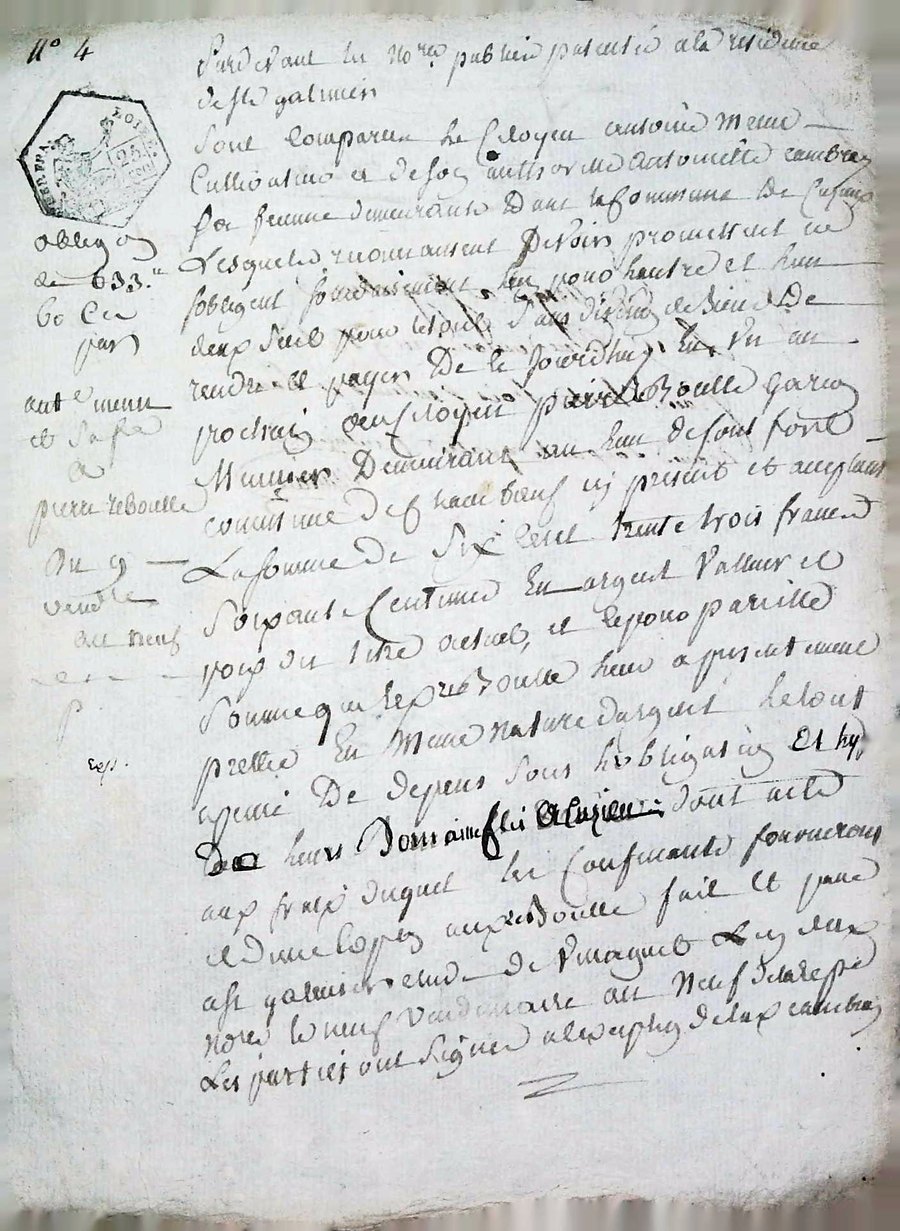 N° 4
Pardevant les No.res publics patentés a la résidence
de St galmier
Sont Comparus le Citoyen antoine Menu
Cultivateur et de Son authorité Antoinette
Sa femme demeurants Dans la Commune de
Lesquels reconnaissent Devoir promettent et
sobligent Solidairement lun pour lautre et lun
deux Seul pour le tout Sans division de Biens De
rendre et payer De ce Jourdhuy En Un an
prochain au Citoyen pierre Reboulle garçon
Meunier Demeurant au lieu de font fort
commune de chambœuf icy présent et acceptant
La somme de Six Cent trente trois francs
Soixante Centimes En argent Valleur et
poix du titre actuel, et Cepour pareille
Somme que led. Reboulle leur a presentement
prettée En Meme nature dargent le tout
apeine De depens Sous lobligation Et hyp.
De leurs Domaines
dont acte
aux fraix duquel les Confessants fourniront
et Dune Copie aud. Reboulle fait Et passé
a St galmier etude de Vinagues Lun des
No.res le neuf Vendemiaire an Neuf de la repe.
Les parties ont Signé alexeption de lad.
oblig.on
de 633.
60 Ces
par
ant.e menu
et Sa fe
a
pierre reboulle
Du 9
vend.re
an neuf
exp.